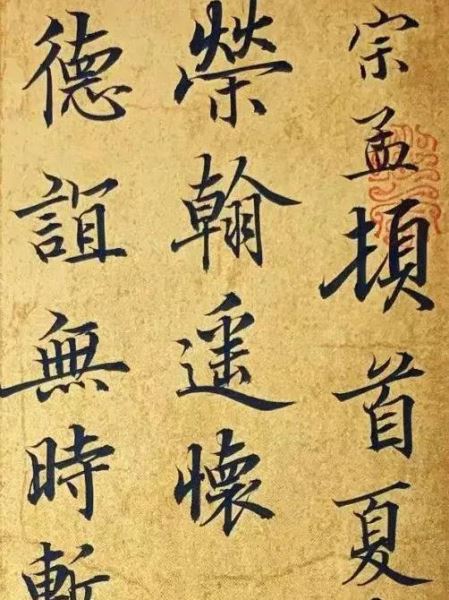 宗孟頓首夏
榮翰遥懷
德誼無時暫